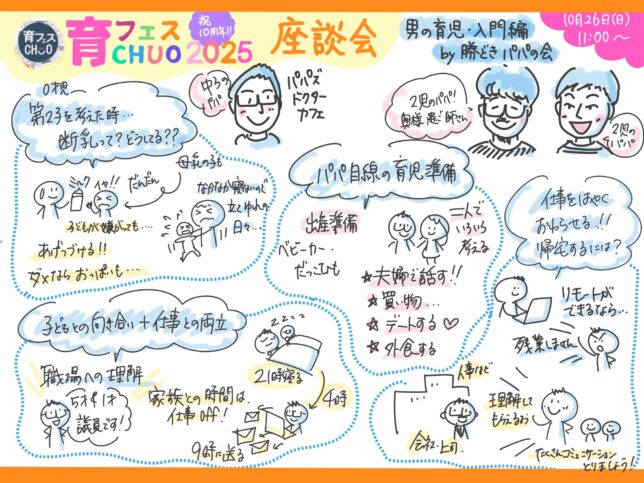 育フェス
CHUO
育フェス
CHUO 2025
祝
10周年!!
座談会
男の育児・入門編
by 勝どきパパの会
10月26日(日)
11:00～
0橙
第2子を考えた時…
断乳って?どうしてる??
中3の
パパ
パパズ
ドクター
カフェ
2児のパパ!
奥様、看ご師さん
2児の
パパ
ミルク
イヤ!!
だんだん
母乳の子も
子どもが嫌がしても…
あげつづける!!
ダメならおっぱいも…
なかなか寝ないので
立てゆれの
日々…
パパ目線の育児準備
出産準備
ベビーカー・
だっこひも
二人で
いろいろ
考える
★夫婦で話す!!
★買い物…
★デートする♡
★外食する
仕事をはやく
おわらせる!!
帰宅するには?
リモートが
できるなら…
残業しません
子どもとの向き合い+仕事との両立
職場への理解
5才、1才
議員です!
家族との時間は、
仕事off!
zzzz
21時寝る
4時
9時に送る
人事など
会社・上司
理解して
もらえるよう
たくさんコミュニケーション
とりましょう!